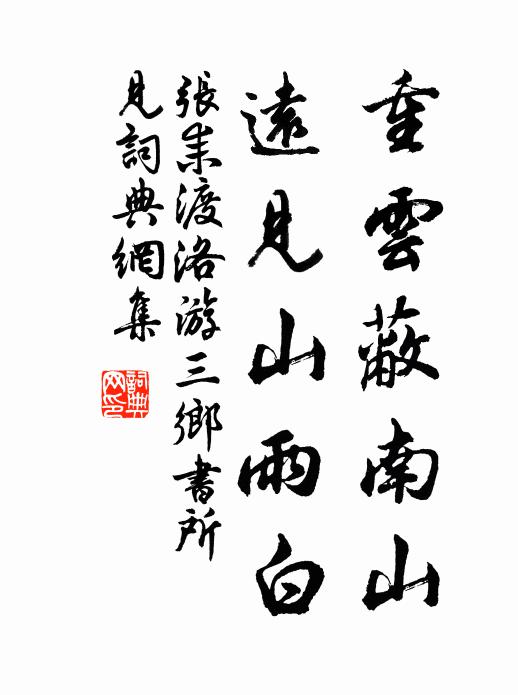 重雲蔽南山
遠見山雨白
張耒渡洛游三鄉書所
見詞典網集
詞典
网印